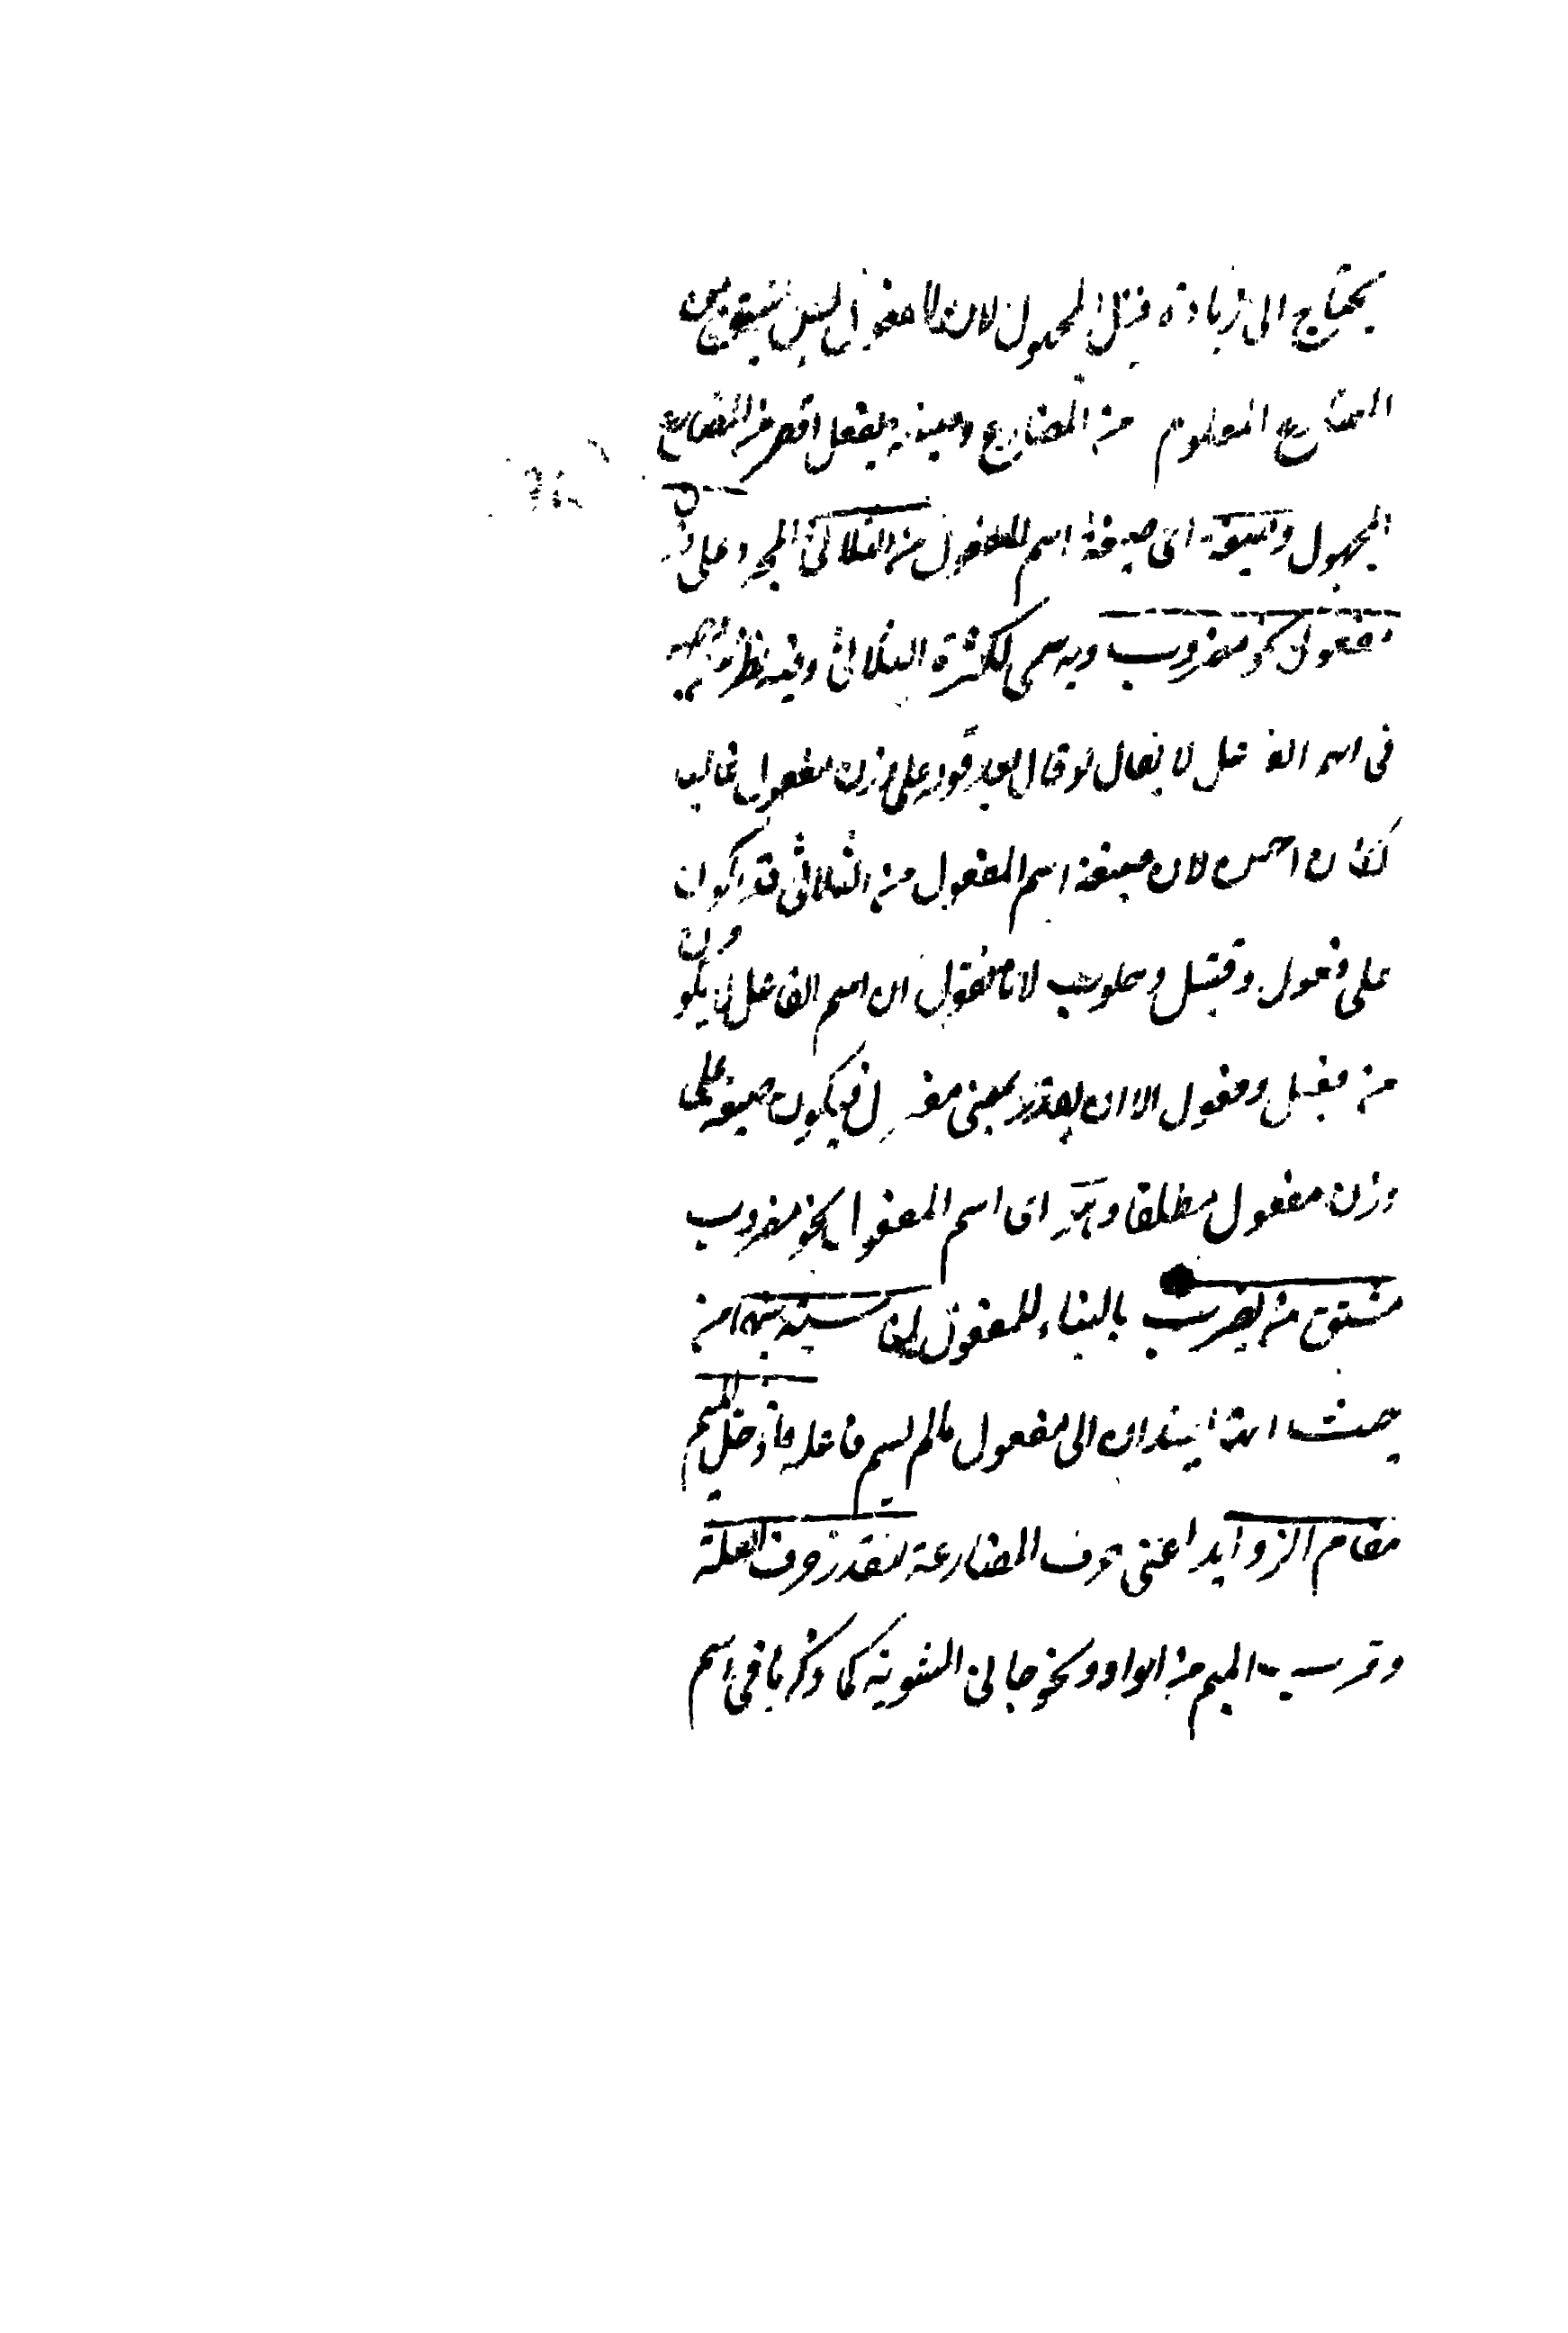 يحتاج الى زيادة قيل المجهول لان المفعول ليس بمشتق من
المضارع المعلوم من المضارع وصيغة يفعل اقصر من المضارع
المجهول وصيغته اى صيغة اسم المفعول من الثلاثى المجرد على وزن
مفعول نحو مضروب وبه سمى لكثرة الثلاثى وفيه نظر
فى اسم الفاعل لا يقال لو قال بعد قوله على وزن مفعول غالبا
لكان احسن لان صيغة اسم المفعول من الثلاثى قد يكون
على فعول وقتيل وحلوب لانا نقول ان اسم الفاعل لا يكون
من فعيل وفعول الا ان يقدر بمعنى مفعول فيكون صيغة على
وزن مفعول مطلقا وهو اى اسم المفعول نحو مضروب
مشتق من يضرب بالبناء للمفعول لمناسبة بينهما من
حيث انهما يسندان الى مفعول ما لم يسم فاعله فأدخل الميم
مقام الزوايد اعنى حرف المضارعة لتعذر حرف العلة
وقرب الميم من الواو ونحو جائى الشوية كما ذكرنا فى اسم